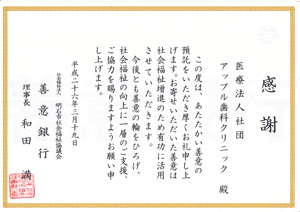 感謝
医療法人社団
アップル歯科クリニック 殿
この度は、あたたかい善意の
預託をいただき厚くお礼申し上
げます。お寄せいただいた善意は
社会福祉増進のため有効に活用
させていただきます。
今後とも善意の輪をひろげ、
社会福祉の向上に一層のご支援、
ご協力を賜りますようお願い申
し上げます。
平成二十六年三月十九日
社会福祉法人 明石市社会福祉協議会
善意銀行
理事長 和田 満